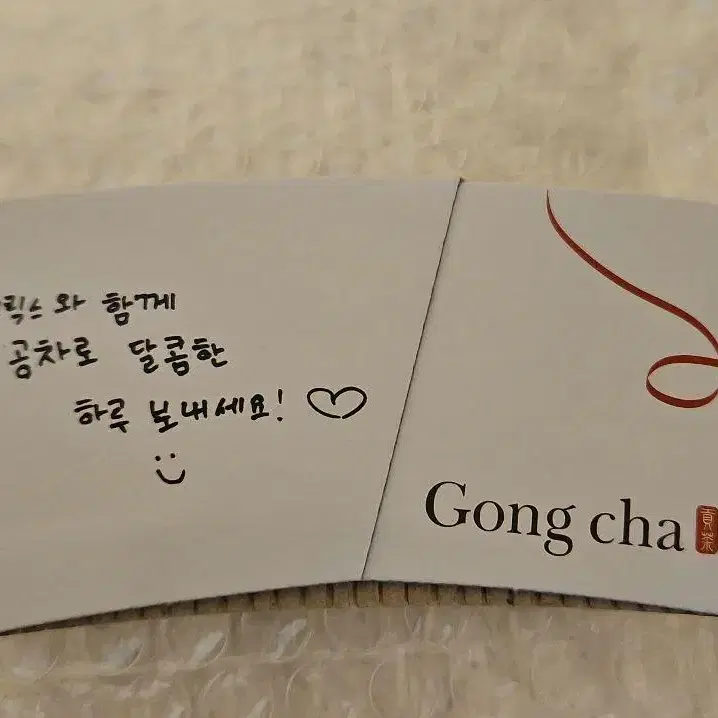 릭스와 함께
공차로 달콤한
하루 보내세요! ♡
Gong cha
貢茶